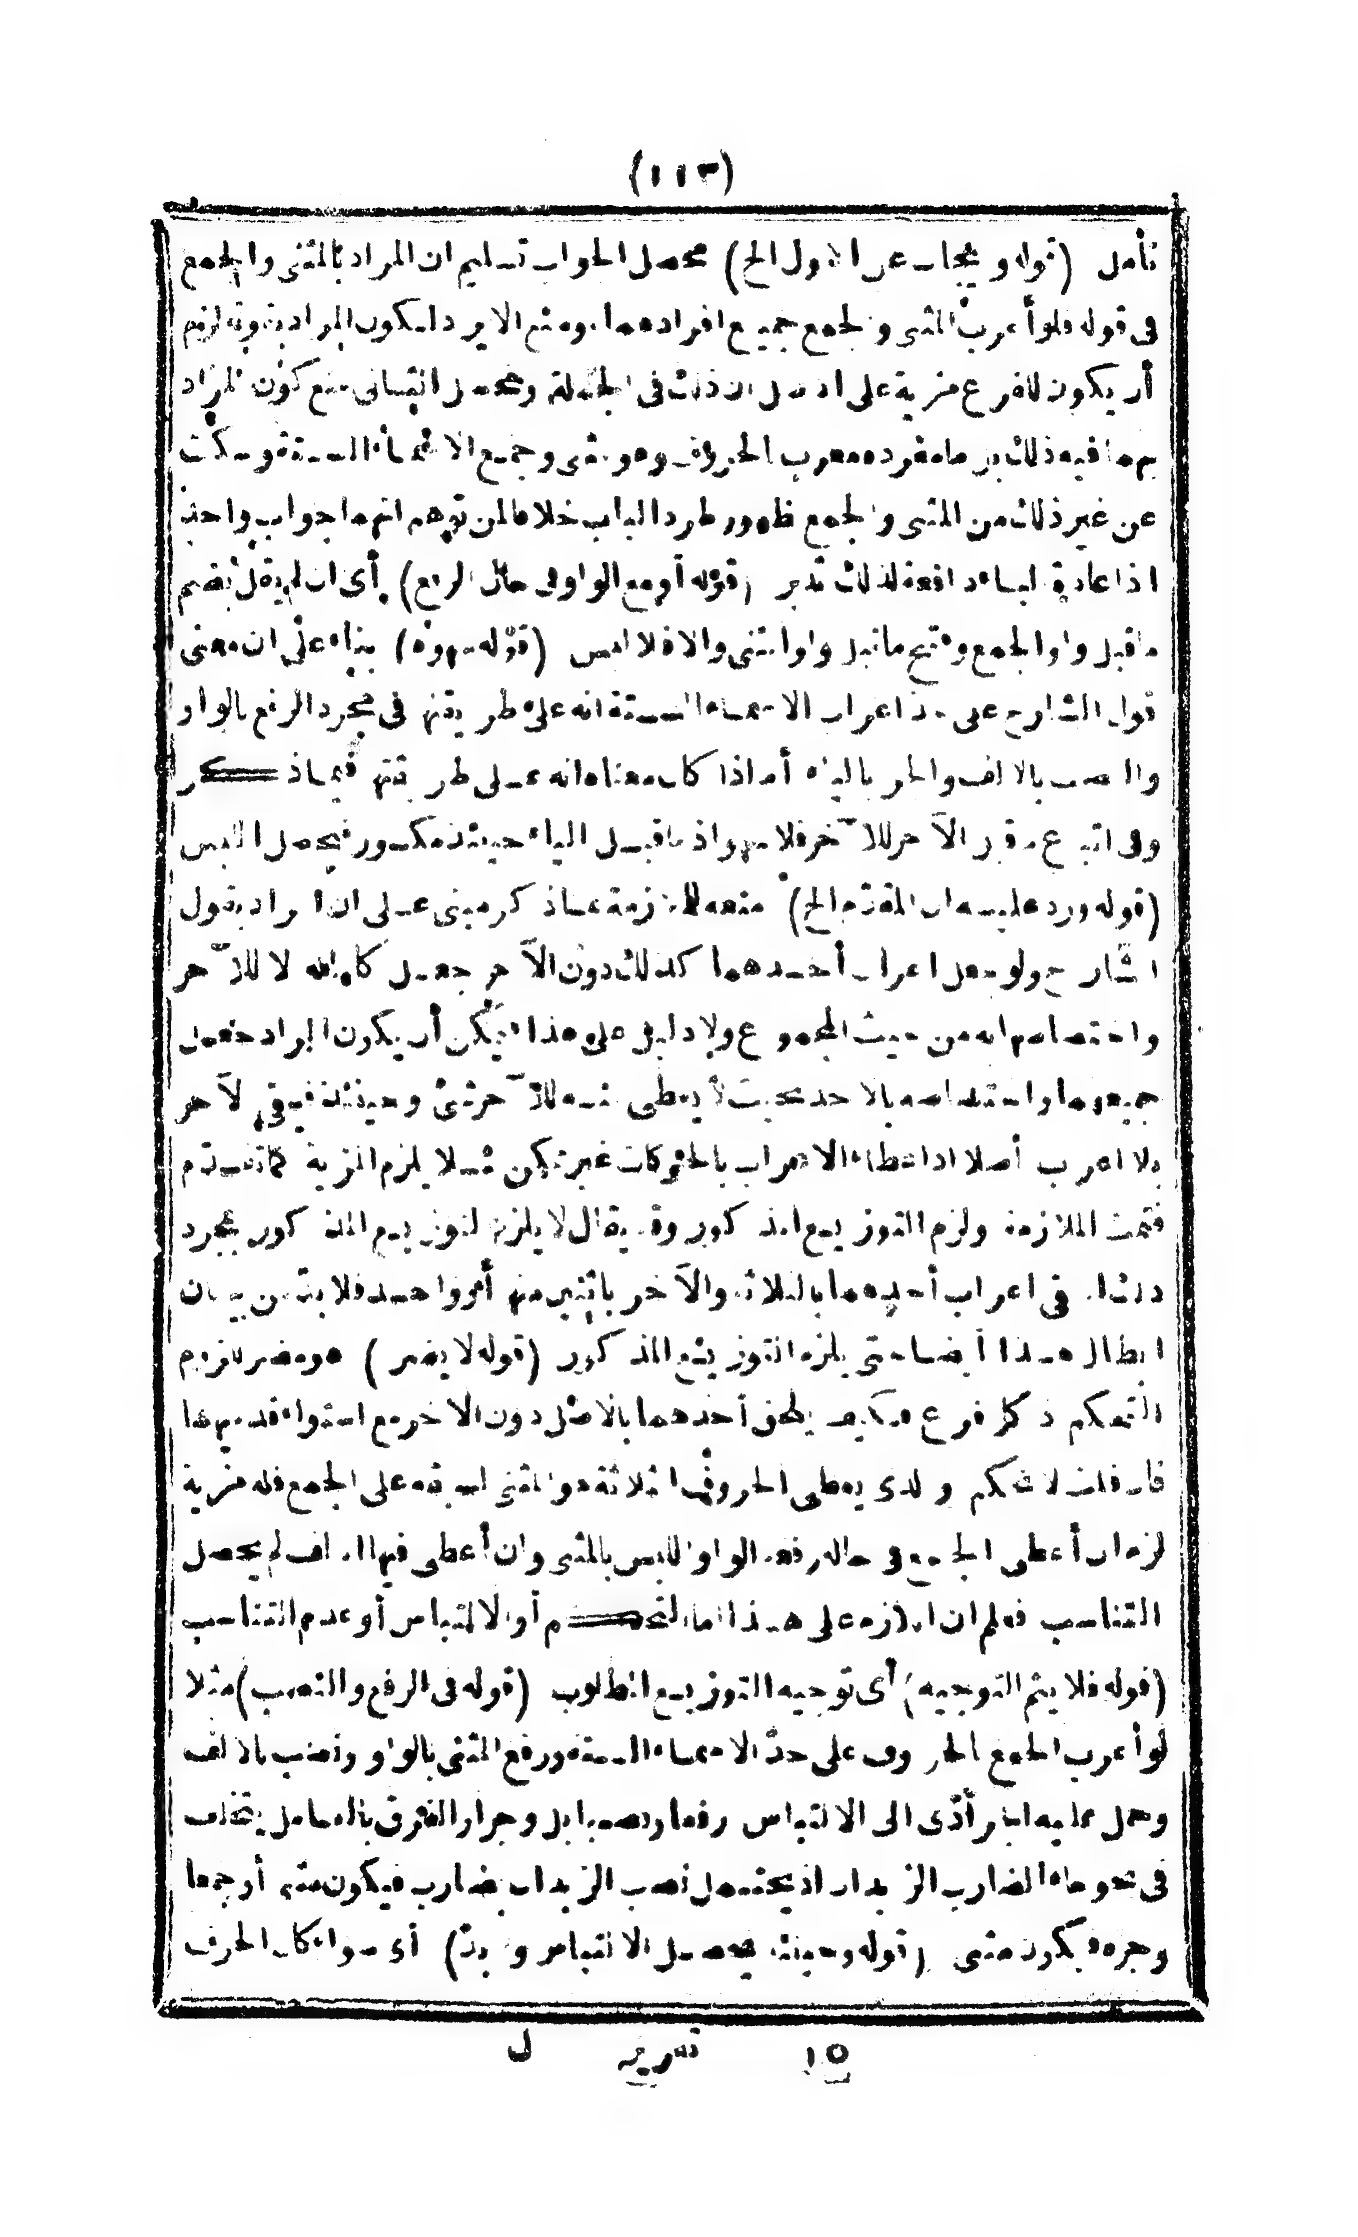 (١١٣)
تأمل (قوله ويجاب عن الاول الخ) محصل الجواب تسليم ان المراد بالمثنى والجمع
فى قوله فلو أعرب المثنى والجمع جميع افرادهما ومنع الايراد لكون المراد بقوله لزم
أن يكون للفرع مزية على الاصل ان ذلك فى الجملة ومحصل الثانى منع كون المراد
بهما فيه ذلك بل ما مفرده معرب بالحروف وهو مثنى وجمع الاسماء الستة وسكت
عن غير ذلك من المثنى والجمع ظهور طرد الباب خلافا لمن توهم انهما جواب واحد
اذ اعادة لبناء دافعة لذلك تدبر (قوله أو مع الواو فى حال الرفع) أى ان لم يقل بضم
ما قبل واو الجمع وفتح ما قبل واو المثنى والا فلا لبس (قوله سهوه) بناء على ان معنى
قول الشارح على حد اعراب الاسماء الستة انه على طريقتها فى مجرد الرفع بالواو
والنصب بالالف والجر بالياء أما اذا كان معناه انه على طريقتها فيما ذكر
وفى اتباع ما قبل الآخر للآخر فلا سهو اذ ما قبل الياء حينئذ مكسور فيحصل اللبس
(قوله ورد عليه ان المقدم الخ) منعه للملازمة بما ذكر مبنى على ان المراد بقول
الشارح ولو جعل اعراب أحدهما كذلك دون الآخر جعل كامله لا للآخر
واختصاصها به من حيث المجموع ولا دليل على هذا بل يمكن أن يكون المراد جعل
جميعها واختصاصه بالاحد بحيث لا يعطى منه للآخر شئ وحينئذ فيبقى الآخر
بلا اعراب أصلا اذ اعطاء الاعراب بالحركات غير ممكن لئلا يلزم المزية كما تقدم
فتمت الملازمة ولزم التوزيع المذكور وقد يقال لا يلزم التوزيع المذكور بمجرد
ذلك فى اعراب أحدهما بالثلاثة والآخر باثنين منها أو واحد فلا بد من بيان
ابطال هذا أيضا حتى يلزم التوزيع المذكور (قوله لا يضر) هو مضر للزوم
التحكم ذ كل فرع فكيف يلحق أحدهما بالاصل دون الآخر مع استواء قدميهما
فان قلت لا تحكم والذى يعطى الحروف الثلاثة هو المثنى لسبقه على الجمع فله مزية
لزم ان أعطى الجمع فى حالة رفعه الواو اللبس بالمثنى وان أعطى فيها الالف لم يحصل
التناسب فعلم ان اللازم على هذا اما التحكم أو الالتباس أو عدم التناسب
(قوله فلا يتم التوجيه) أى توجيه التوزيع المطلوب (قوله فى الرفع والنصب) مثلا
لو أعرب الجمع بالحروف على حد الاسماء الستة ورفع المثنى بالواو ونصب بالالف
وحمل عليه الجر أدى الى الالتباس رفعا ونصبا بل وجرا والفرق بالعامل يتخلف
فى نحو جاء الضارب الزيدان اذ يحتمل نصب الزيدان بضارب فيكون مثنى أو جمعا
وجره فيكون مثنى (قوله وحينئذ يحصل الالتباس ولا بد) أى سواء كان الحرف
١٥ تقرير ل